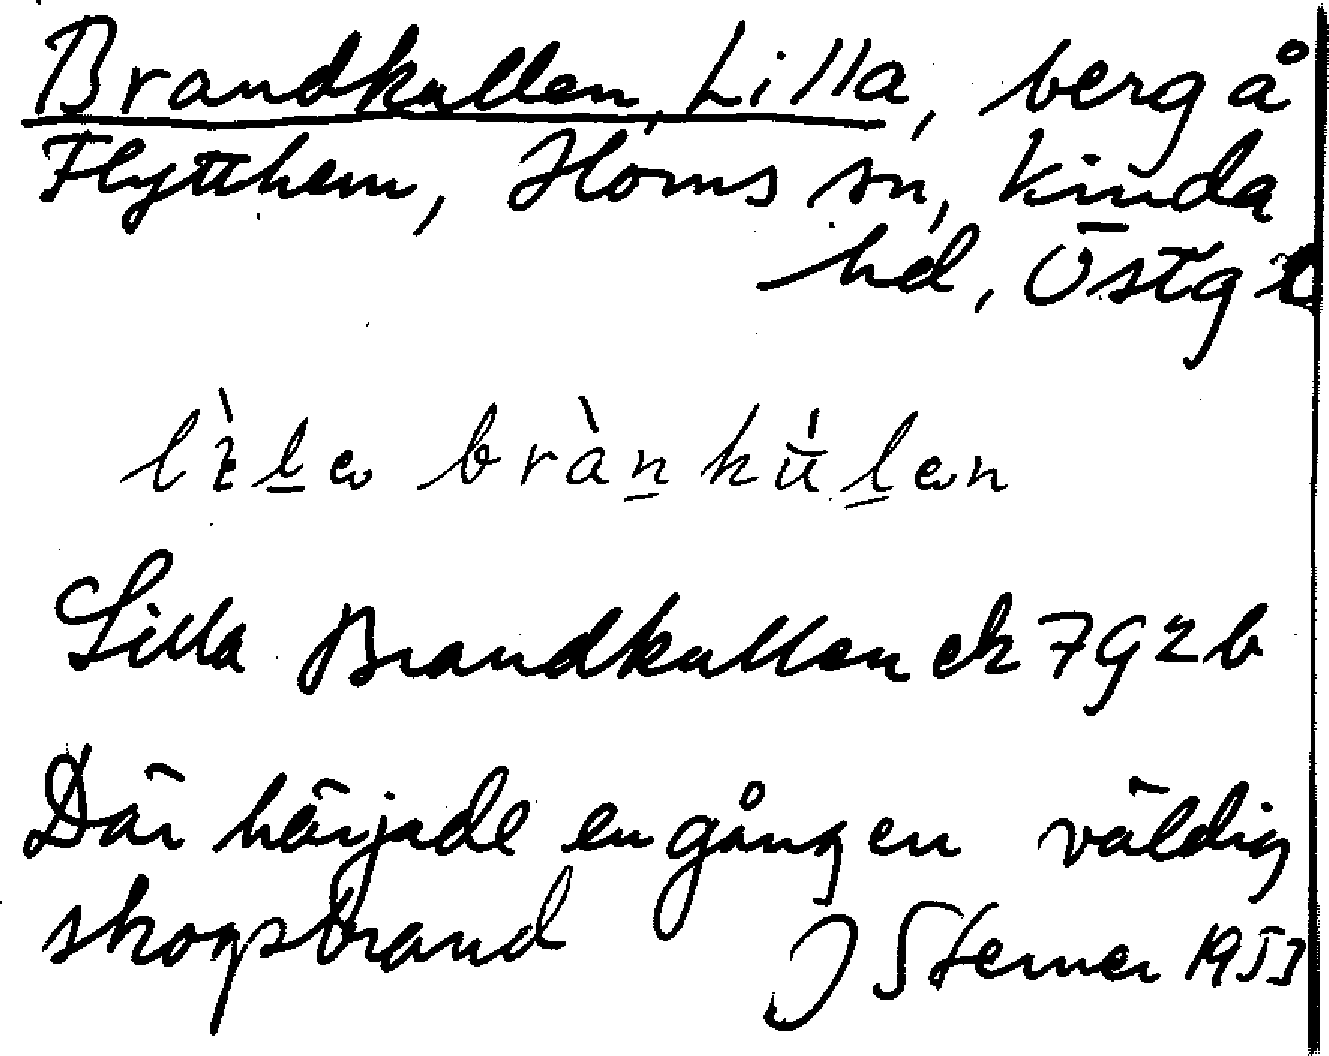 Brandkullen, Lilla, berg å
Flytthem, Horns sn, Kinda
hd, Östg
Lilla Brandkullen ek 7g2b
Där härjade en gång en väldig
skogsbrand J Sterner 1953